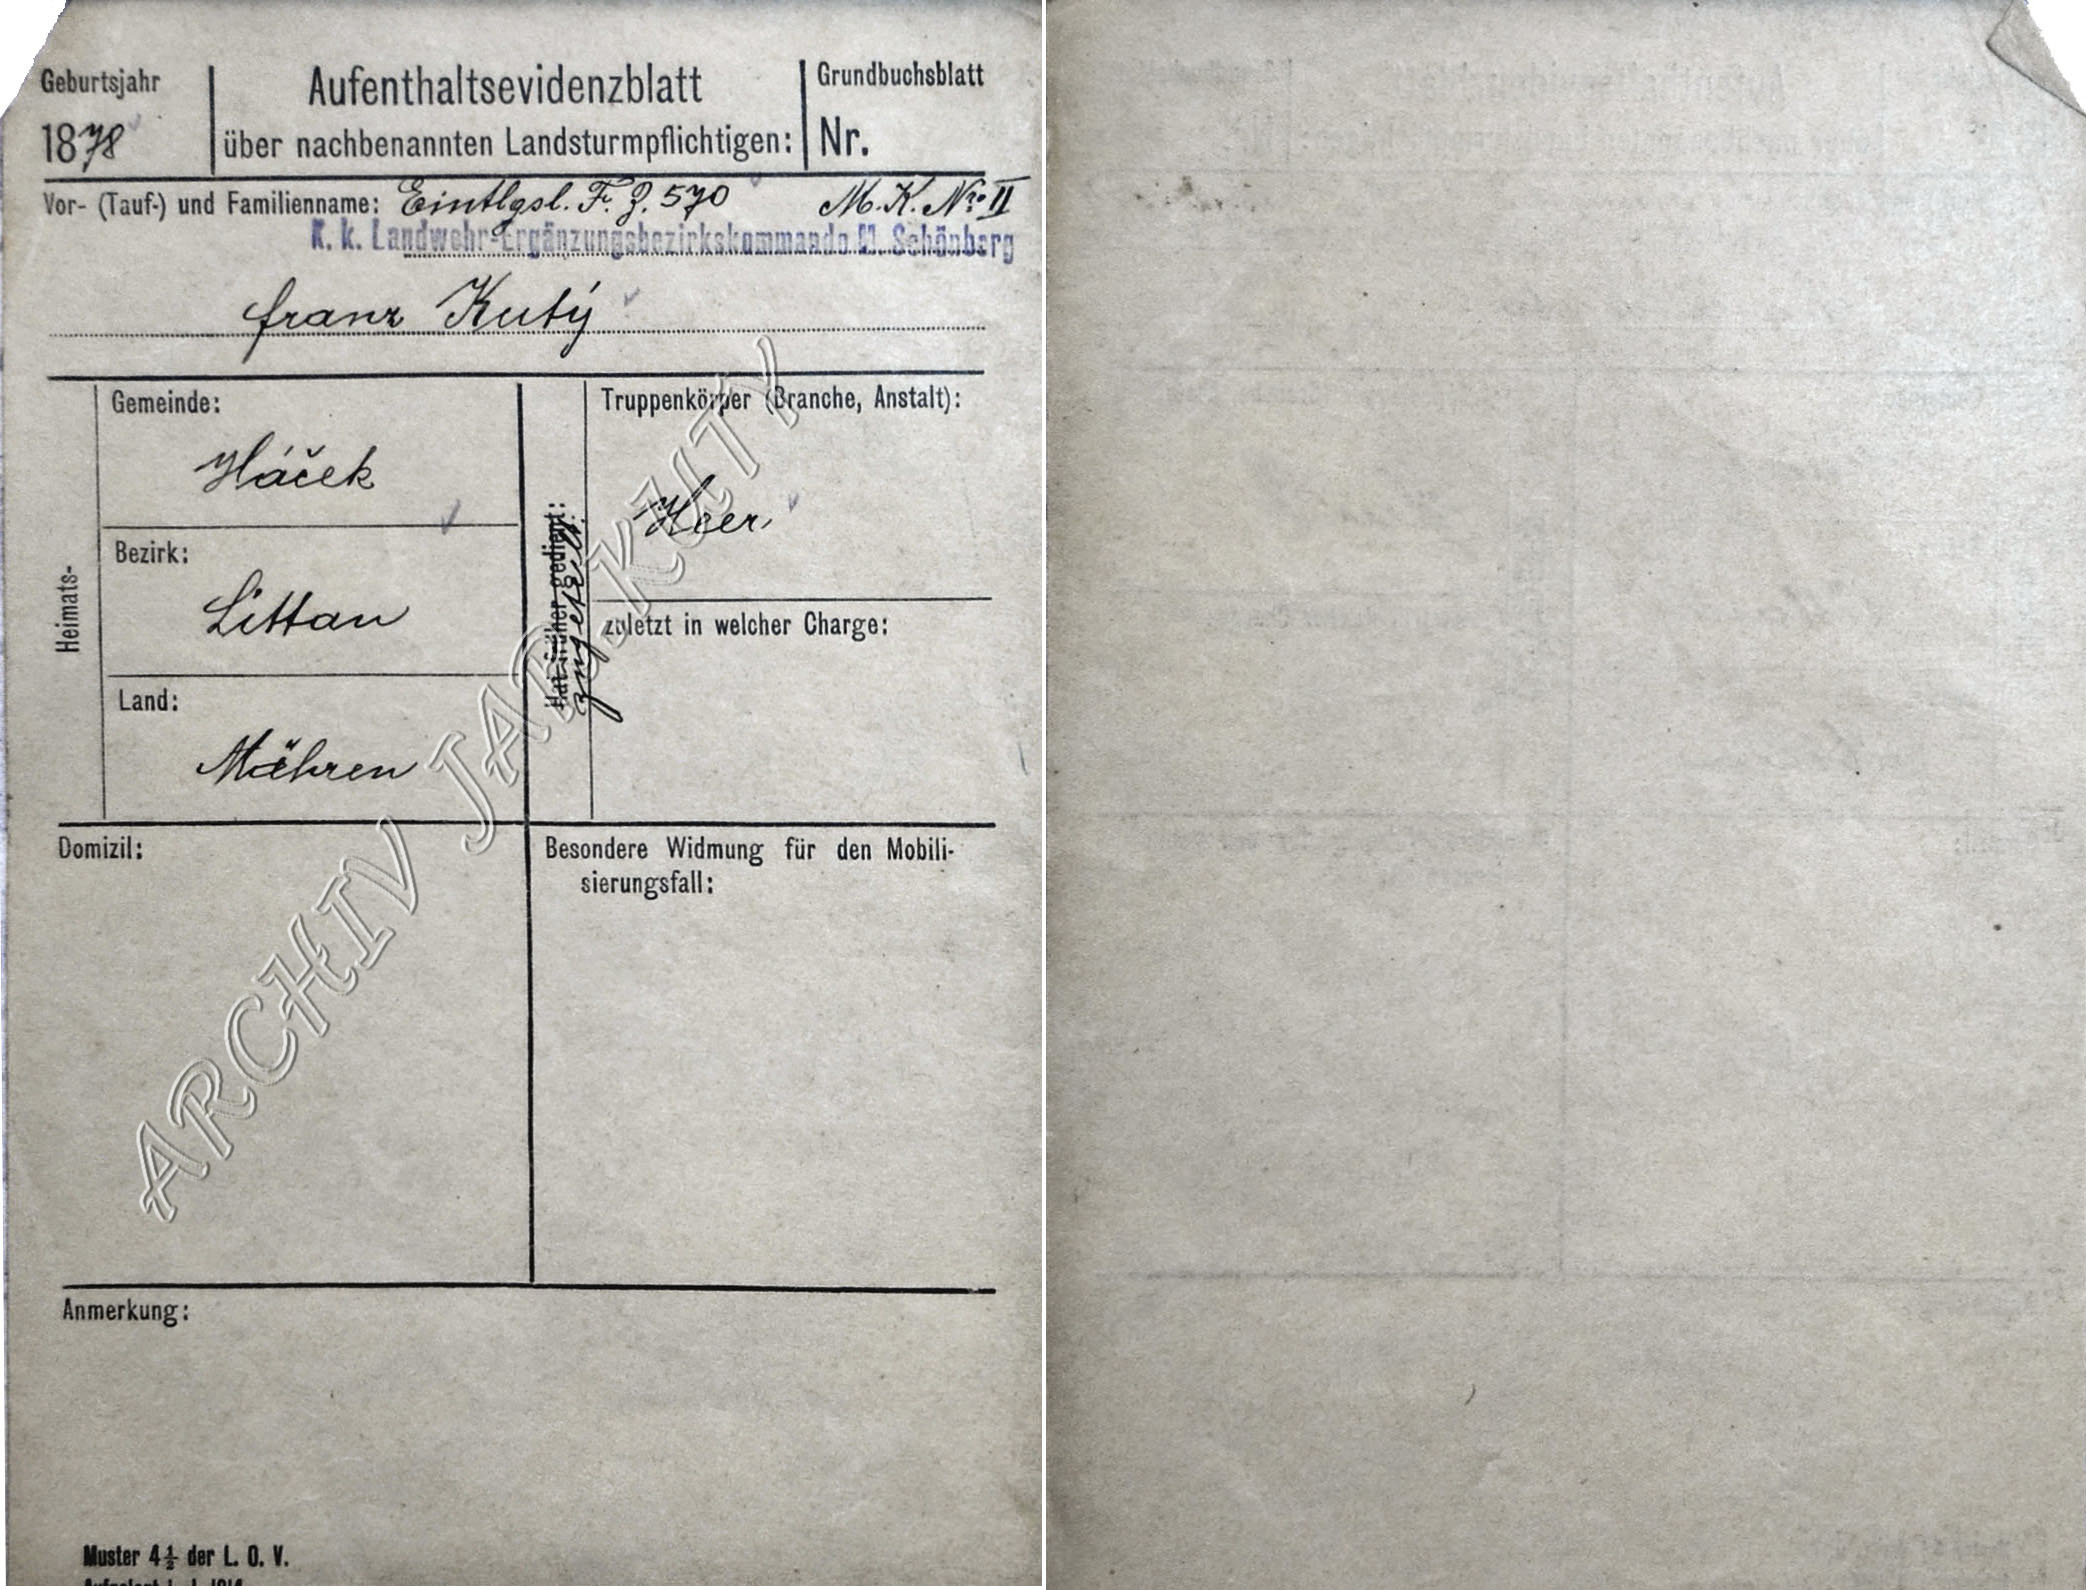 Geburtsjahr
1878
Aufenthaltsevidenzblatt
über nachbenannten Landsturmpflichtigen:
Grundbuchsblatt
Nr.
Vor- (Tauf-) und Familienname: Eintlgsl. F. Z. 570 M. K. No. II
K. k. Landwehr-Ergänzungsbezirkskommando M. Schönberg
Franz Kutý
Heimats-
Gemeinde:
Háček
Bezirk:
Littau
Land:
Mähren
Hat früher gedient:
zugeteilt.
Truppenkörper (Branche, Anstalt):
Heer,
zuletzt in welcher Charge:
Domizil:
Besondere Widmung für den Mobili-
sierungsfall:
Anmerkung:
Muster 4½ der L. O. V.
ARCHIV JAR. KUTÝ